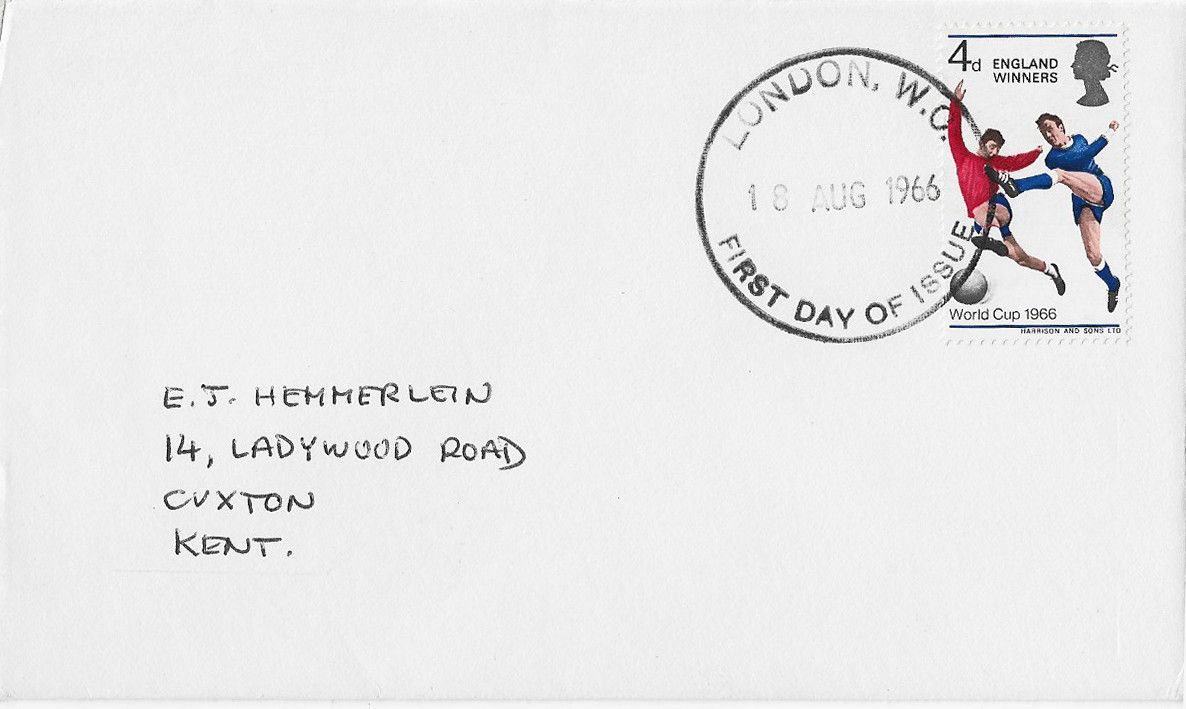 LONDON, W.C.
18 AUG 1966
FIRST DAY OF ISSUE
4d ENGLAND
WINNERS
World Cup 1966
HARRISON AND SONS LTD
E.J. HEMMERLEIN
14, LADYWOOD ROAD
CUXTON
KENT.